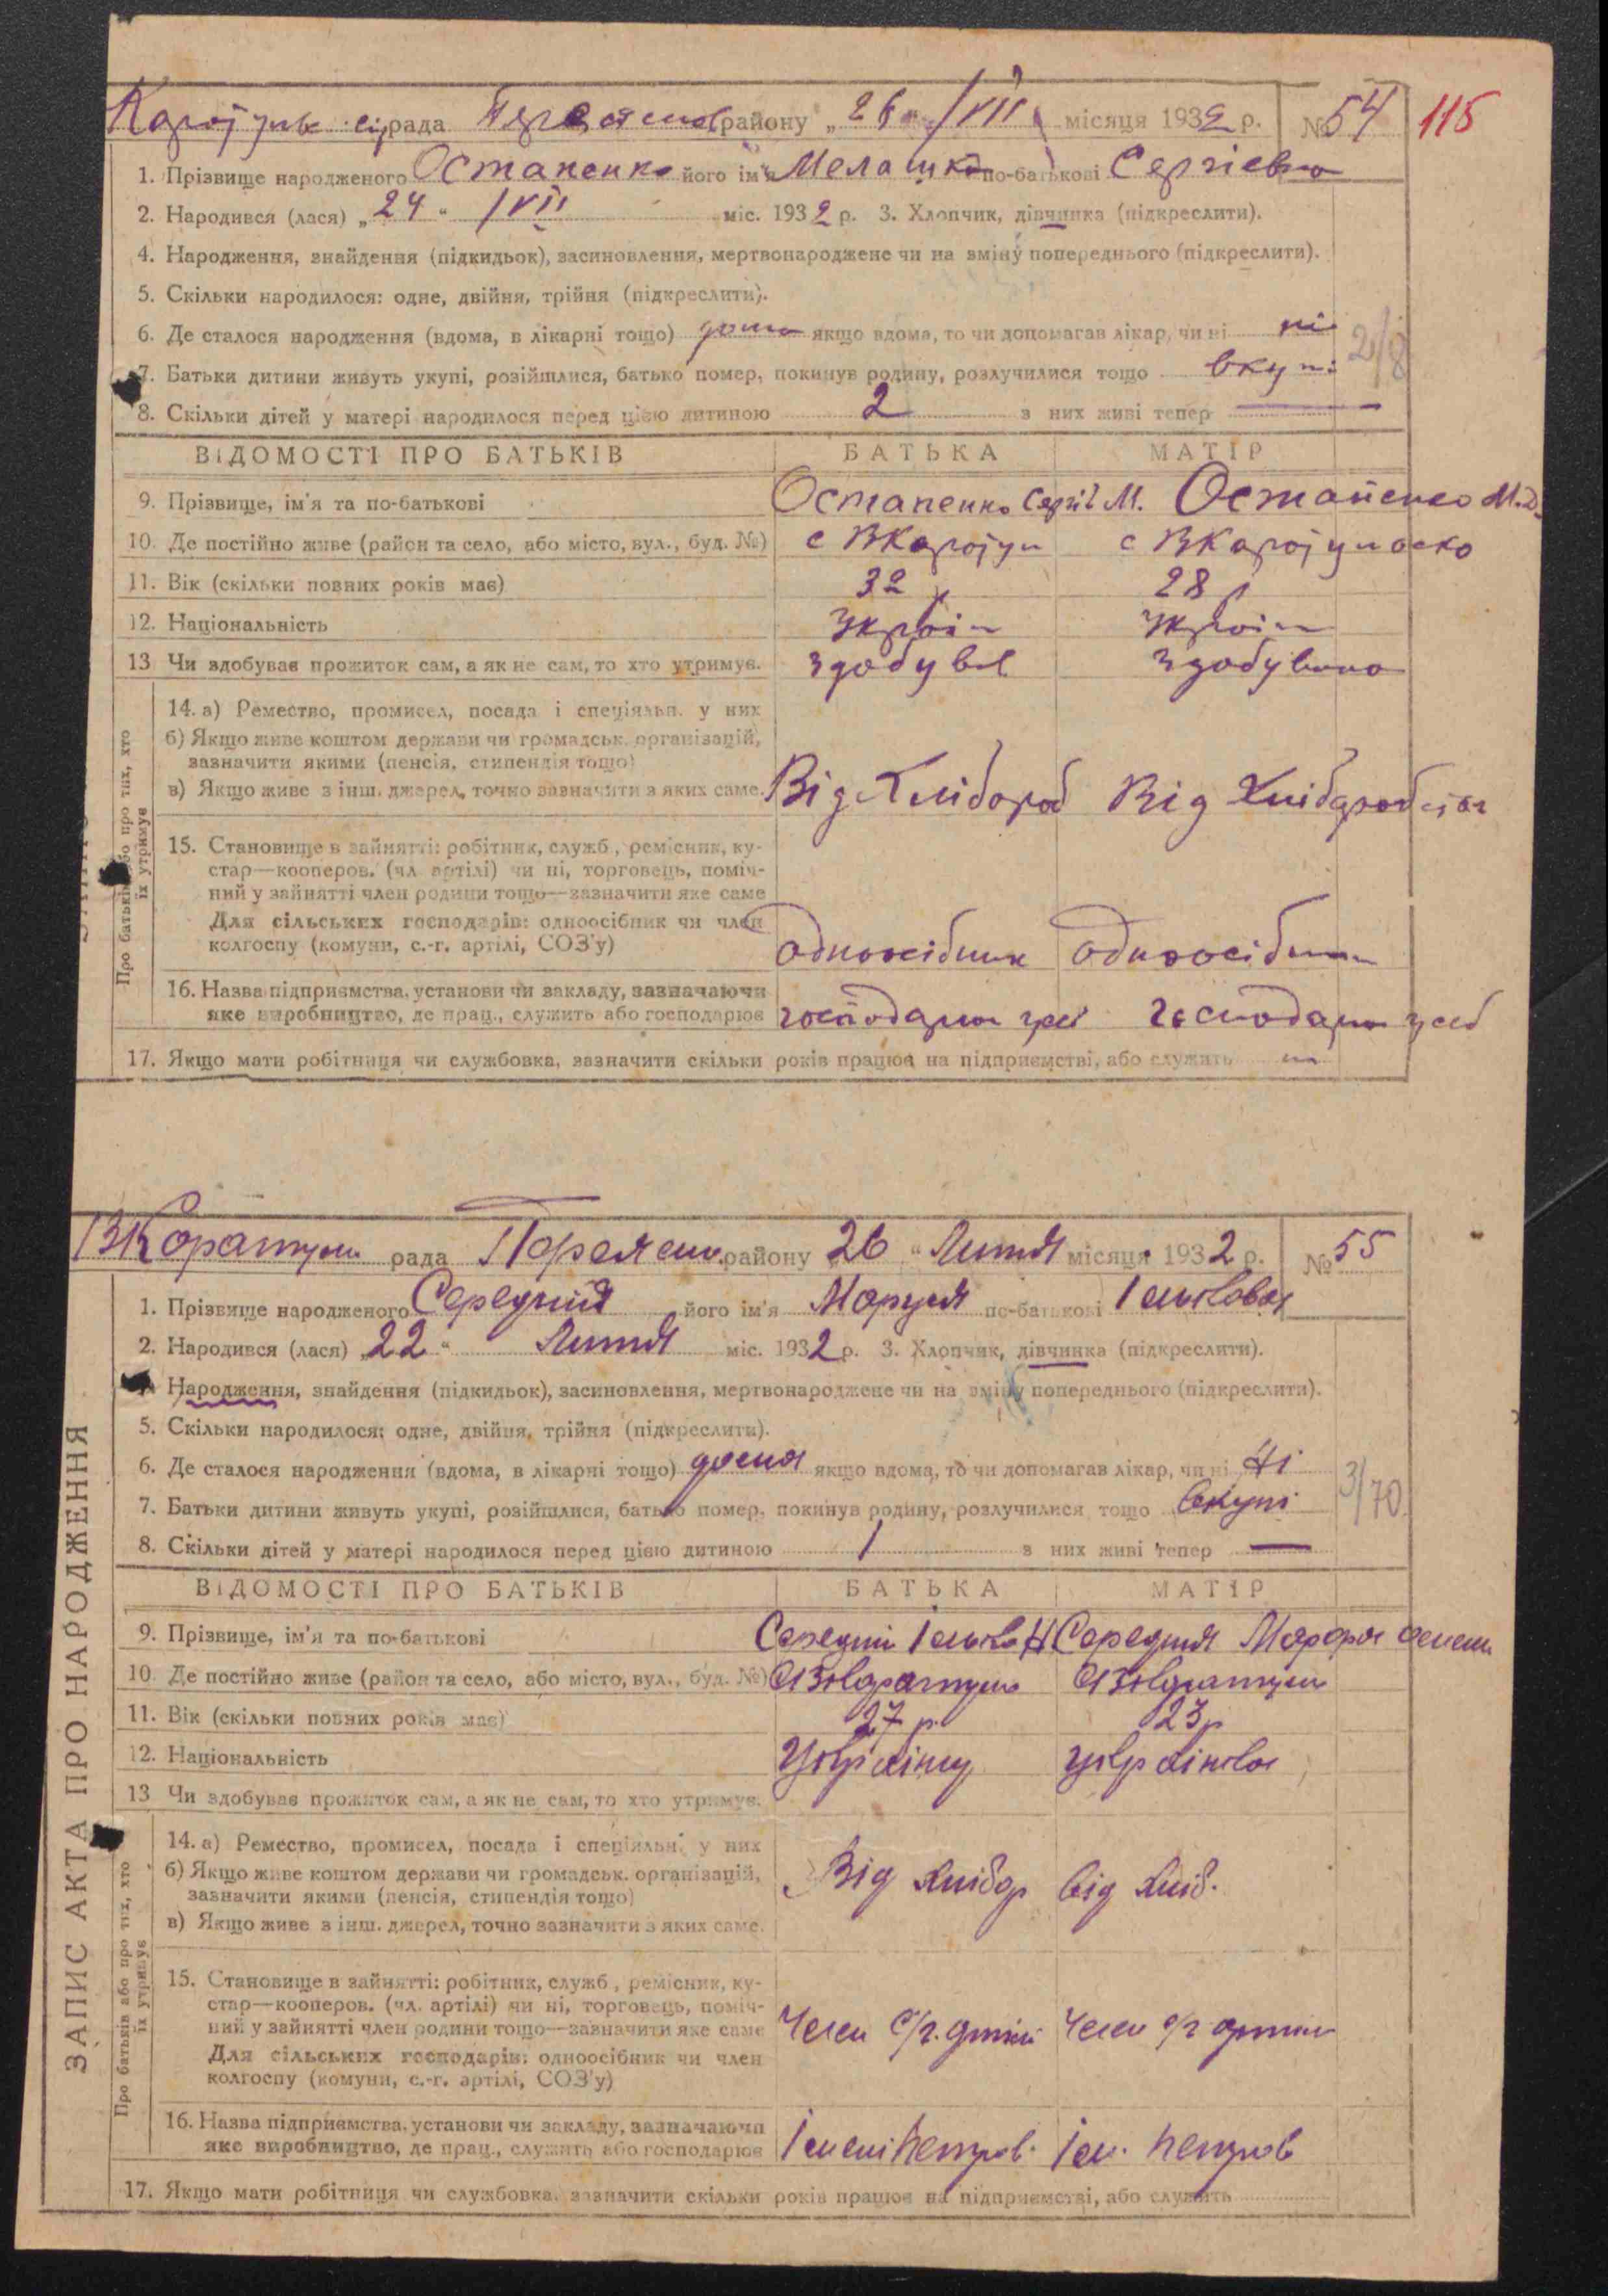 рада району „26" /VII місяця 1932 р. № 54 115
1. Прізвище народженого Остапенко його ім'я Мелашка по-батькові Сергієвна
2. Народився (лася) „24" /VII міс. 1932 р. 3. Хлопчик, дівчинка (підкреслити).
4. Народження, знайдення (підкидьок), засиновлення, мертвонароджене чи на зміну попереднього (підкреслити).
5. Скільки народилося: одне, двійня, трійня (підкреслити).
6. Де сталося народження (вдома, в лікарні тощо) дома якщо вдома, то чи допомагав лікар, чи ні ні
2/8
7. Батьки дитини живуть укупі, розійшлися, батько помер, покинув родину, розлучилися тощо вкупі
8. Скільки дітей у матері народилося перед цією дитиною 2 з них живі тепер —
ВІДОМОСТІ ПРО БАТЬКІВ БАТЬКА МАТІР
9. Прізвище, ім'я та по-батькові Остапенко Сергій М. Остапенко М.Д.
10. Де постійно живе (район та село, або місто, вул., буд. №) с с
11. Вік (скільки повних років має) 32 р 28 р
12. Національність Україн Україн
13 Чи здобуває прожиток сам, а як не сам, то хто утримує.
Про батьків або про тих, хто їх утримує
14. а) Ремество, промисел, посада і спеціяльн. у них
б) Якщо живе коштом держави чи громадськ. організацій,
зазначити якими (пенсія, стипендія тощо)
в) Якщо живе з інш. джерел, точно зазначити з яких саме. Від Хлібороб Від
15. Становище в зайнятті: робітник, служб., ремісник, ку-
стар—кооперов. (чл. артілі) чи ні, торговець, поміч-
ний у зайнятті член родини тощо—зазначити яке саме
Для сільських господарів: одноосібник чи член
колгоспу (комуни, с.-г. артілі, СОЗ'у) одноосібник одноосібник
16. Назва підприємства, установи чи закладу, зазначаючи
яке виробництво, де прац., служить або господарює
17. Якщо мати робітниця чи службовка, зазначити скільки років працює на підприємстві, або служить
ЗАПИС АКТА ПРО НАРОДЖЕННЯ
рада району 26 " Липня місяця 1932 р. № 55
1. Прізвище народженого Середній його ім'я Маруся по-батькові
2. Народився (лася) „22" Липня міс. 1932 р. 3. Хлопчик, дівчинка (підкреслити).
4. Народження, знайдення (підкидьок), засиновлення, мертвонароджене чи на зміну попереднього (підкреслити).
5. Скільки народилося: одне, двійня, трійня (підкреслити).
6. Де сталося народження (вдома, в лікарні тощо) дома якщо вдома, то чи допомагав лікар, чи ні Ні
3/70
7. Батьки дитини живуть укупі, розійшлися, батько помер, покинув родину, розлучилися тощо Вкупі
8. Скільки дітей у матері народилося перед цією дитиною 1 з них живі тепер —
ВІДОМОСТІ ПРО БАТЬКІВ БАТЬКА МАТІР
9. Прізвище, ім'я та по-батькові Середній Середня
10. Де постійно живе (район та село, або місто, вул., буд. №)
11. Вік (скільки повних років має) 27 р. 23 р
12. Національність Українка
13 Чи здобуває прожиток сам, а як не сам, то хто утримує.
Про батьків або про тих, хто їх утримує
14. а) Ремество, промисел, посада і спеціяльн. у них
б) Якщо живе коштом держави чи громадськ. організацій,
зазначити якими (пенсія, стипендія тощо) Від хлібор від хліб.
в) Якщо живе з інш. джерел, точно зазначити з яких саме.
15. Становище в зайнятті: робітник, служб., ремісник, ку-
стар—кооперов. (чл. артілі) чи ні, торговець, поміч-
ний у зайнятті член родини тощо—зазначити яке саме Член с/г. артілі Член с/г артілі
Для сільських господарів: одноосібник чи член
колгоспу (комуни, с.-г. артілі, СОЗ'у)
16. Назва підприємства, установи чи закладу, зазначаючи
яке виробництво, де прац., служить або господарює Імені Петров. Ім. Петров
17. Якщо мати робітниця чи службовка, зазначити скільки років працює на підприємстві, або служить